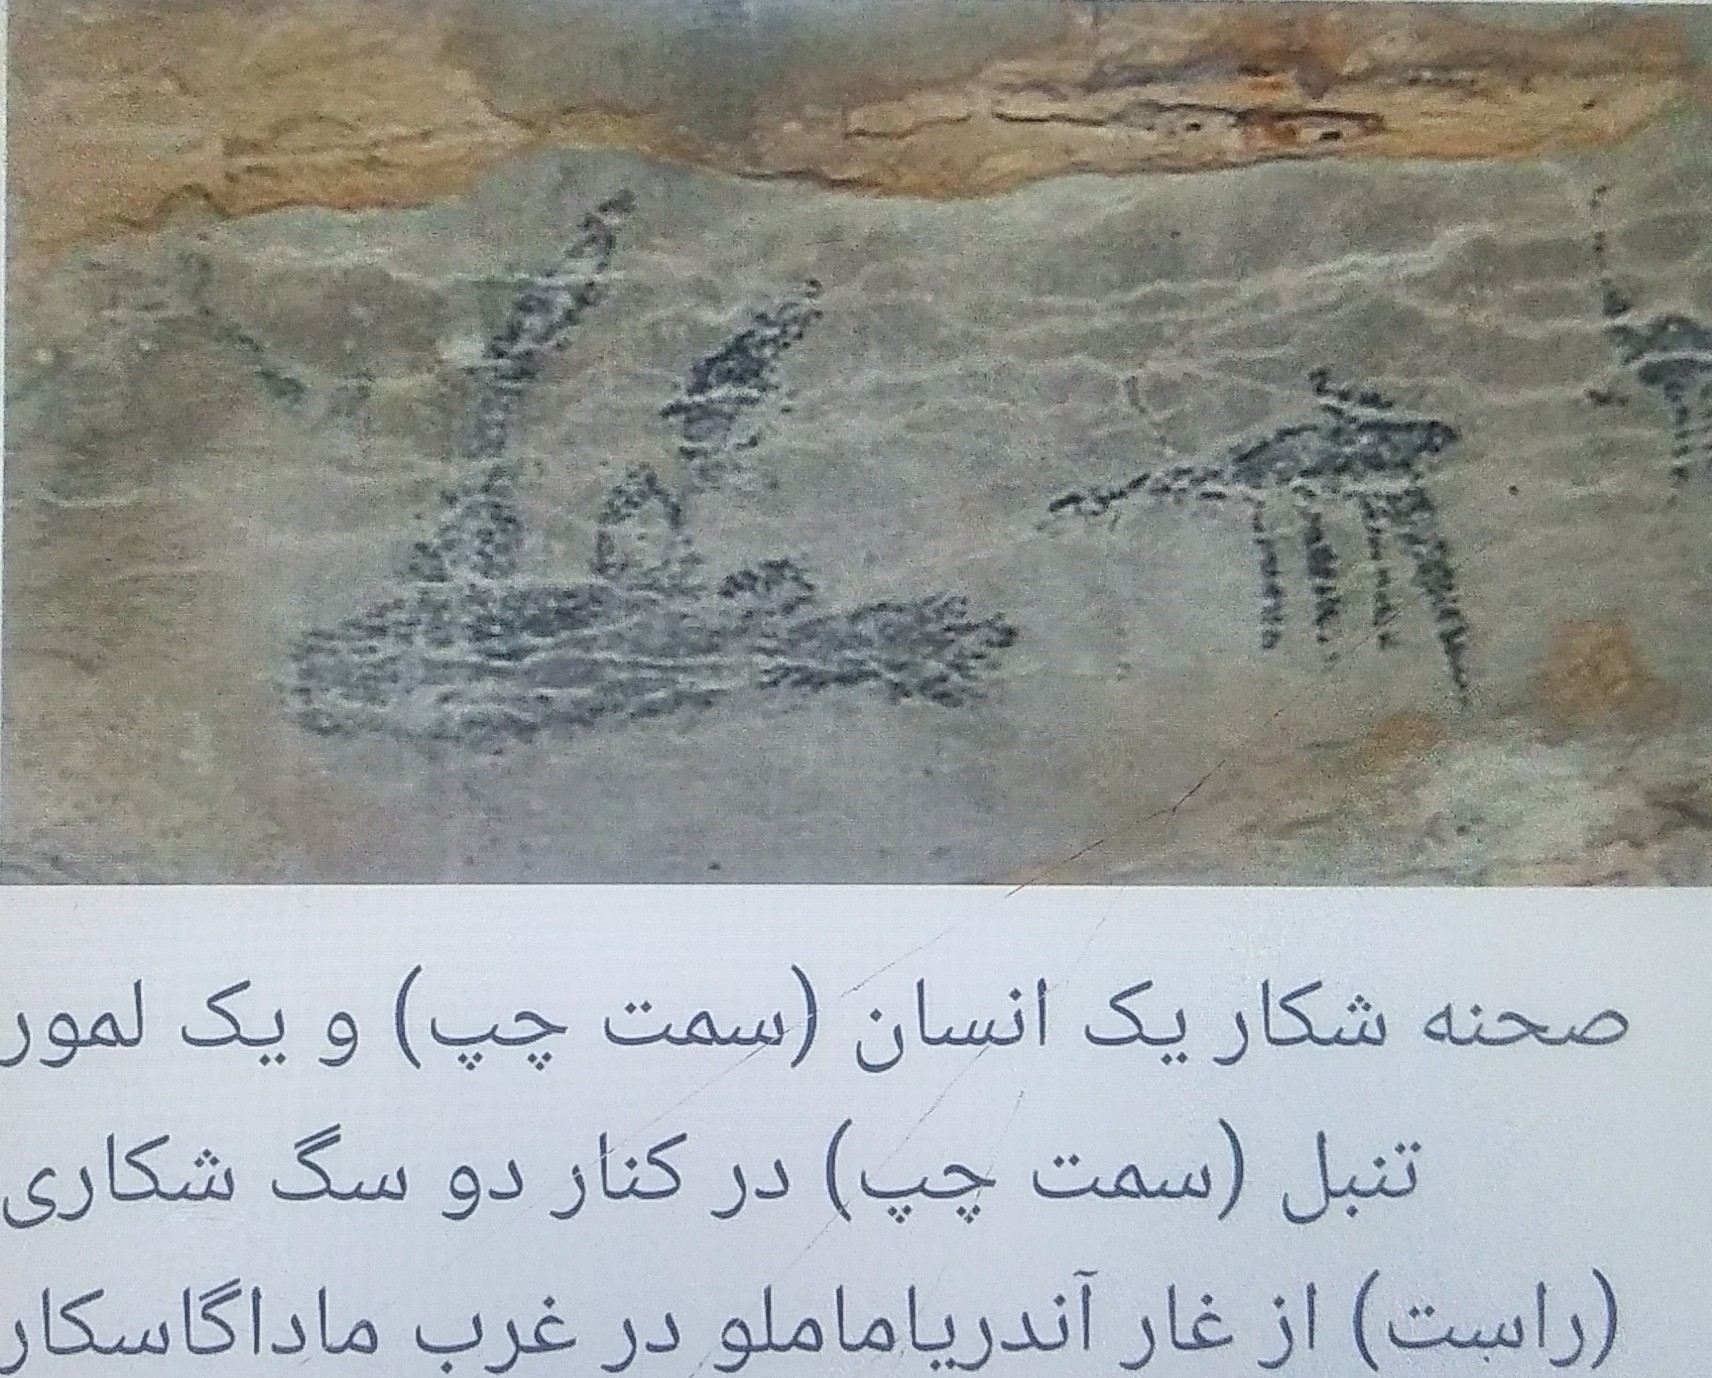 صحنه شکار یک انسان (سمت چپ) و یک لمور
تنبل (سمت چپ) در کنار دو سگ شکاری
(راست) از غار آندریاماملو در غرب ماداگاسکار